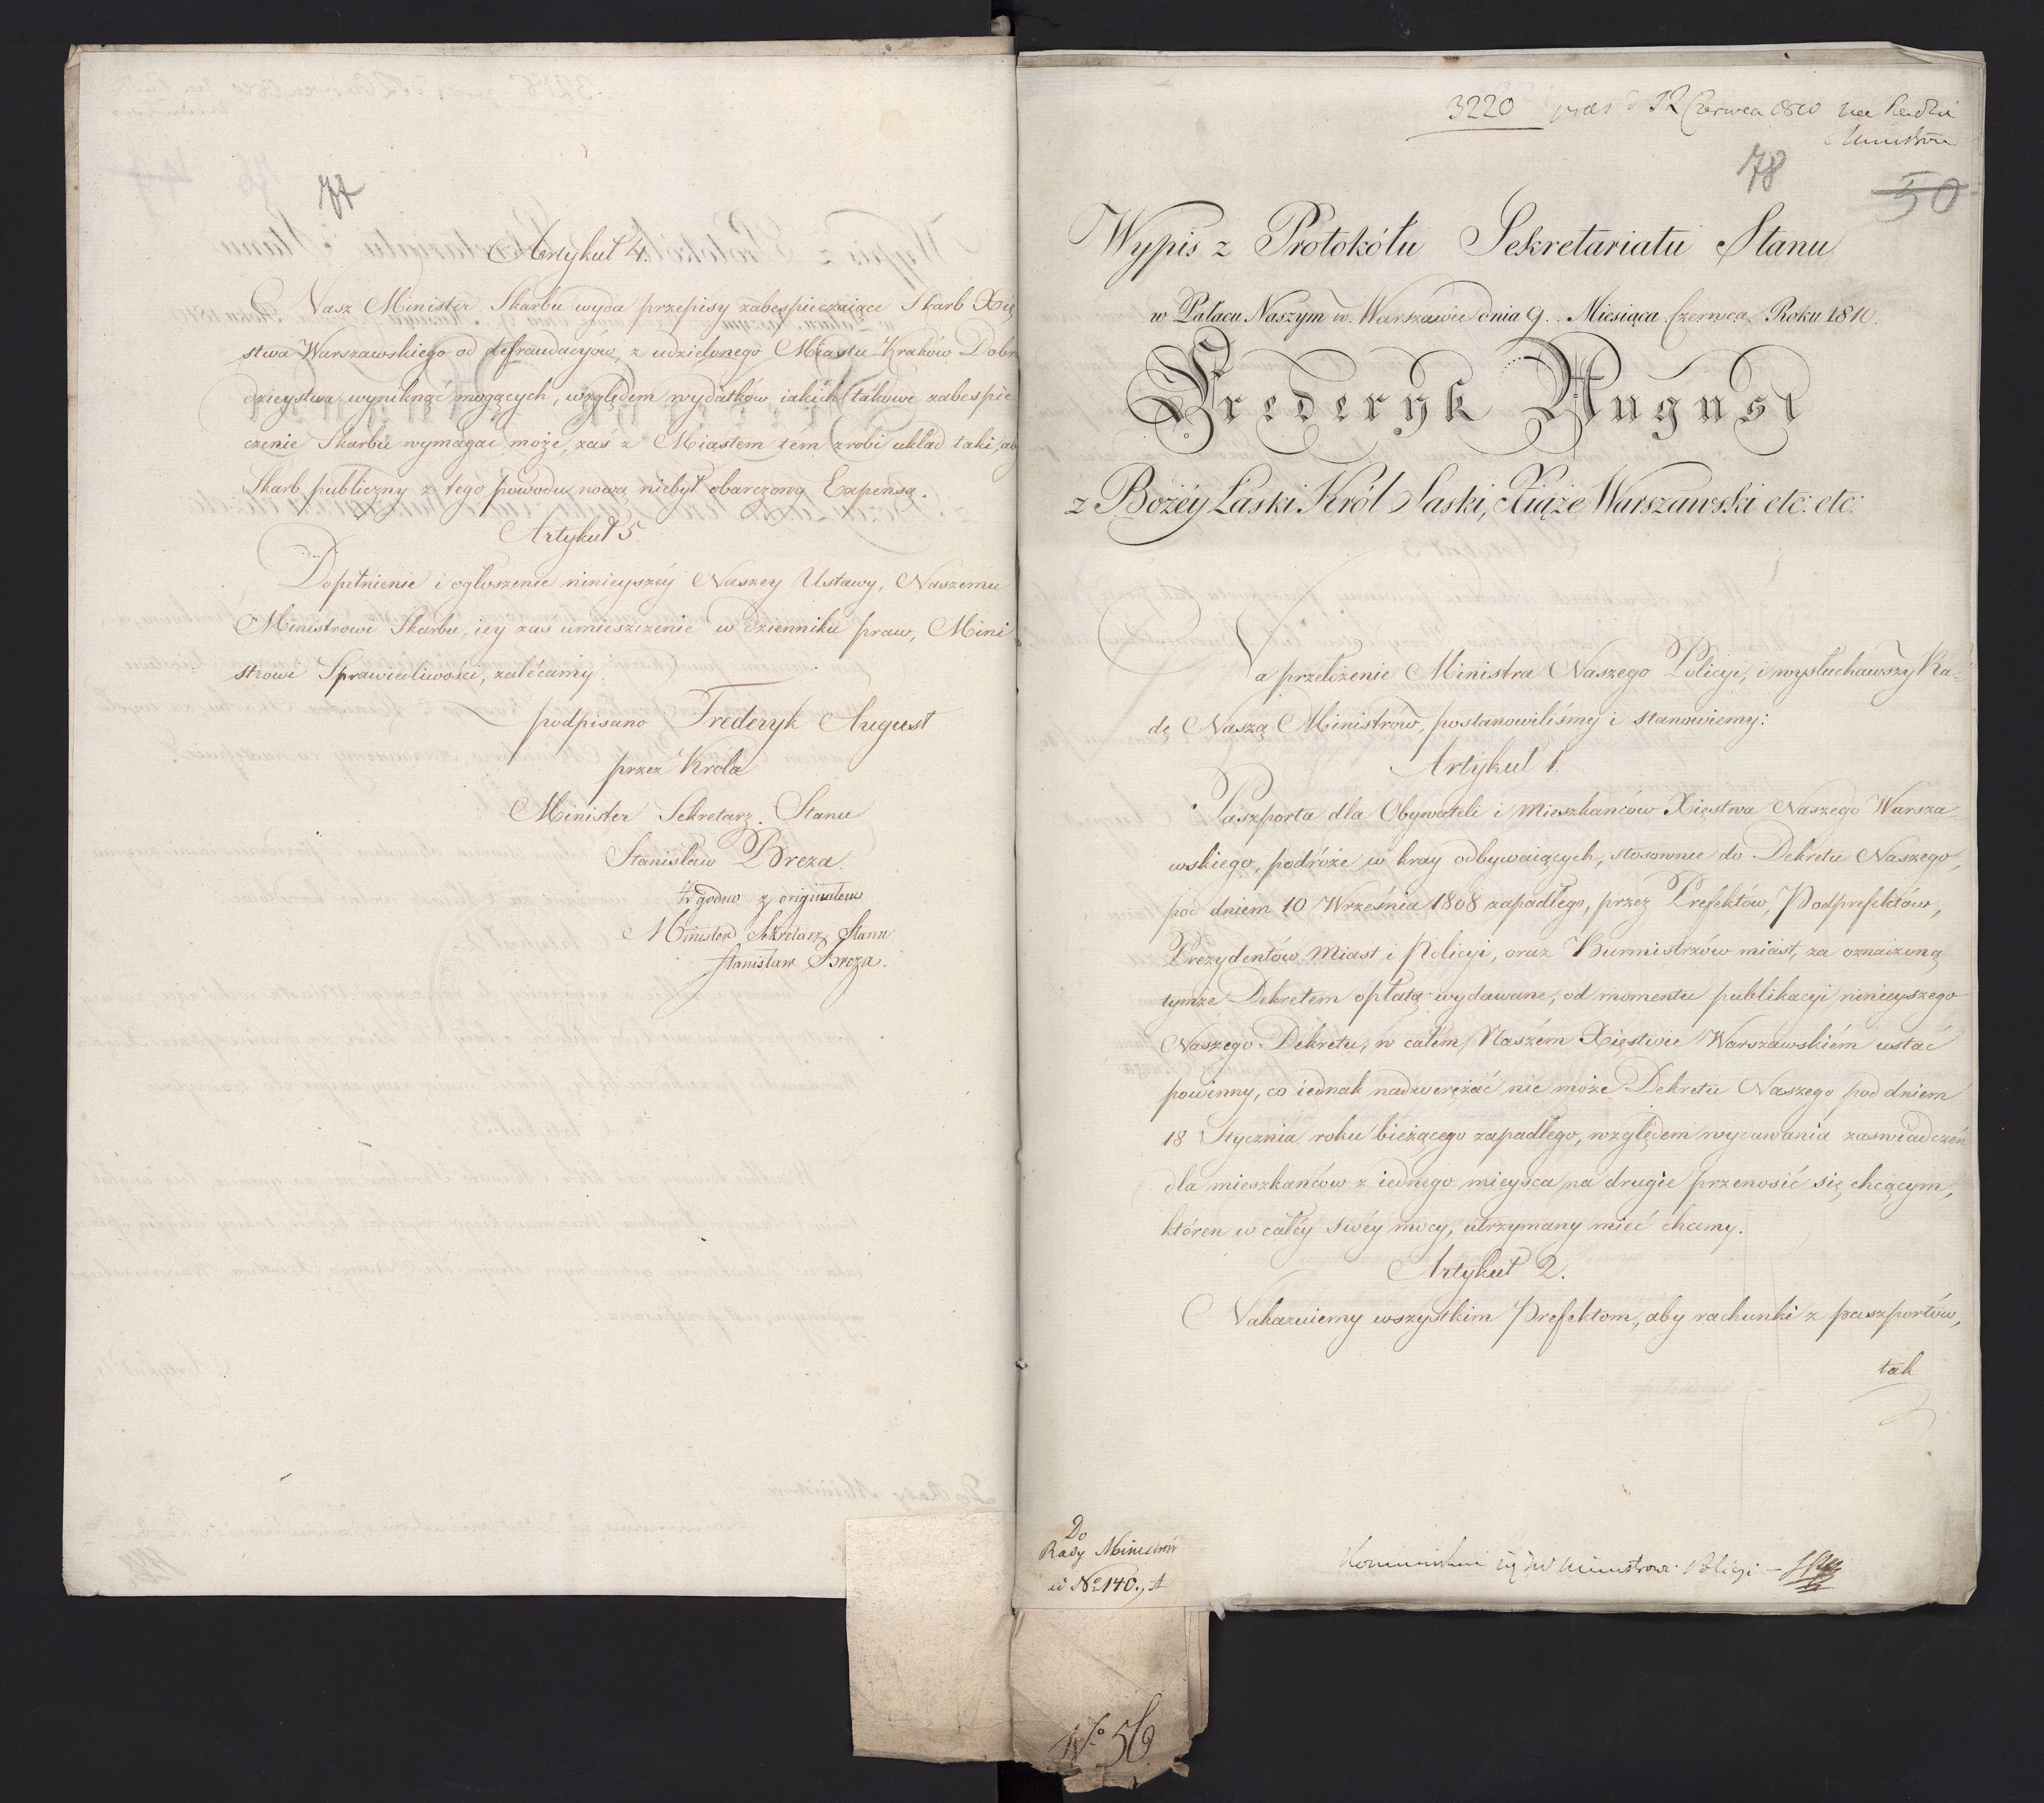 77
Artykuł 4.
Nasz Minister Skarbu wyda przepisy zabespieczaiące Skarb Xię
stwa Warszawskiego od defraudacyow, z udzielonego Miastu Kraków Dobro
dzieystwa wyniknąć mogących, względem wydatków iakich takowe zabespie
czenie Skarbu wymagać może, zaś z Miastem tém zrobi układ taki, ab
Skarb publiczny z tego powodu nową niebył obarczony Expensą.
Artykuł 5
Dopełnienie i ogłoszenie ninieyszéy Naszey Ustawy, Naszemu
Ministrowi Skarbu, iey zaś umieszczenie w dzienniku praw, Mini
strowi Sprawiedliwości, zalécamy.
podpisano Frederyk August
przez Krola
Minister Sekretarz Stanu
Stanisław Breza.
Zgodno z originałem
Minister Sekretarz Stanu
Stanisław Breza.
3220 d 12 Czerwca 1810 na Radzie
Ministrów
78
50
Wypis z Protokółu Sekretariatu Stanu
w Pałacu Naszym w Warszawie dnia 9. Miesiąca Czerwca Roku 1810.
Frederyk August
z Bożéy Łaski Król Saski, Xiąże Warszawski etc: etc:
Na przełożenie Ministra Naszego Policyi, i wysłuchawszy Ra-
dę Naszą Ministrów, postanowiliśmy i stanowiemy:
Artykuł 1.
Paszporta dla Obywateli i Mieszkańców Xięstwa Naszego Warsza-
wskiego, podróże w kray odbywaiących, stosownie do Dekretu Naszego,
pod dniem 10 Września 1808 zapadłego, przez Prefektów, Podprefektów,
Prezydentów Miast i Policyi, oraz Burmistrzów miast, za oznaczoną
tymże Dekretem opłatą wydawane, od momentu publikacyi ninieyszego
Naszego Dekretu, w całém Naszém Xięstwie Warszawskiém ustać
powinny, co iednak nadwerężać nie może Dekretu Naszego pod dniem
18 Stycznia roku bieżącego zapadłego, względem wydawania zaświadczeń
dla mieszkańców z iednego mieysca na drugie przenosić się chcącym,
któren w całéy swéy mocy, utrzymany mieć chcemy.
Artykuł 2.
Nakazuiemy wszystkim Prefektom, aby rachunki z paszportów,
tak
Do
Rady Ministrów
ad No 140., A
Ministrowi Policyi
No 56